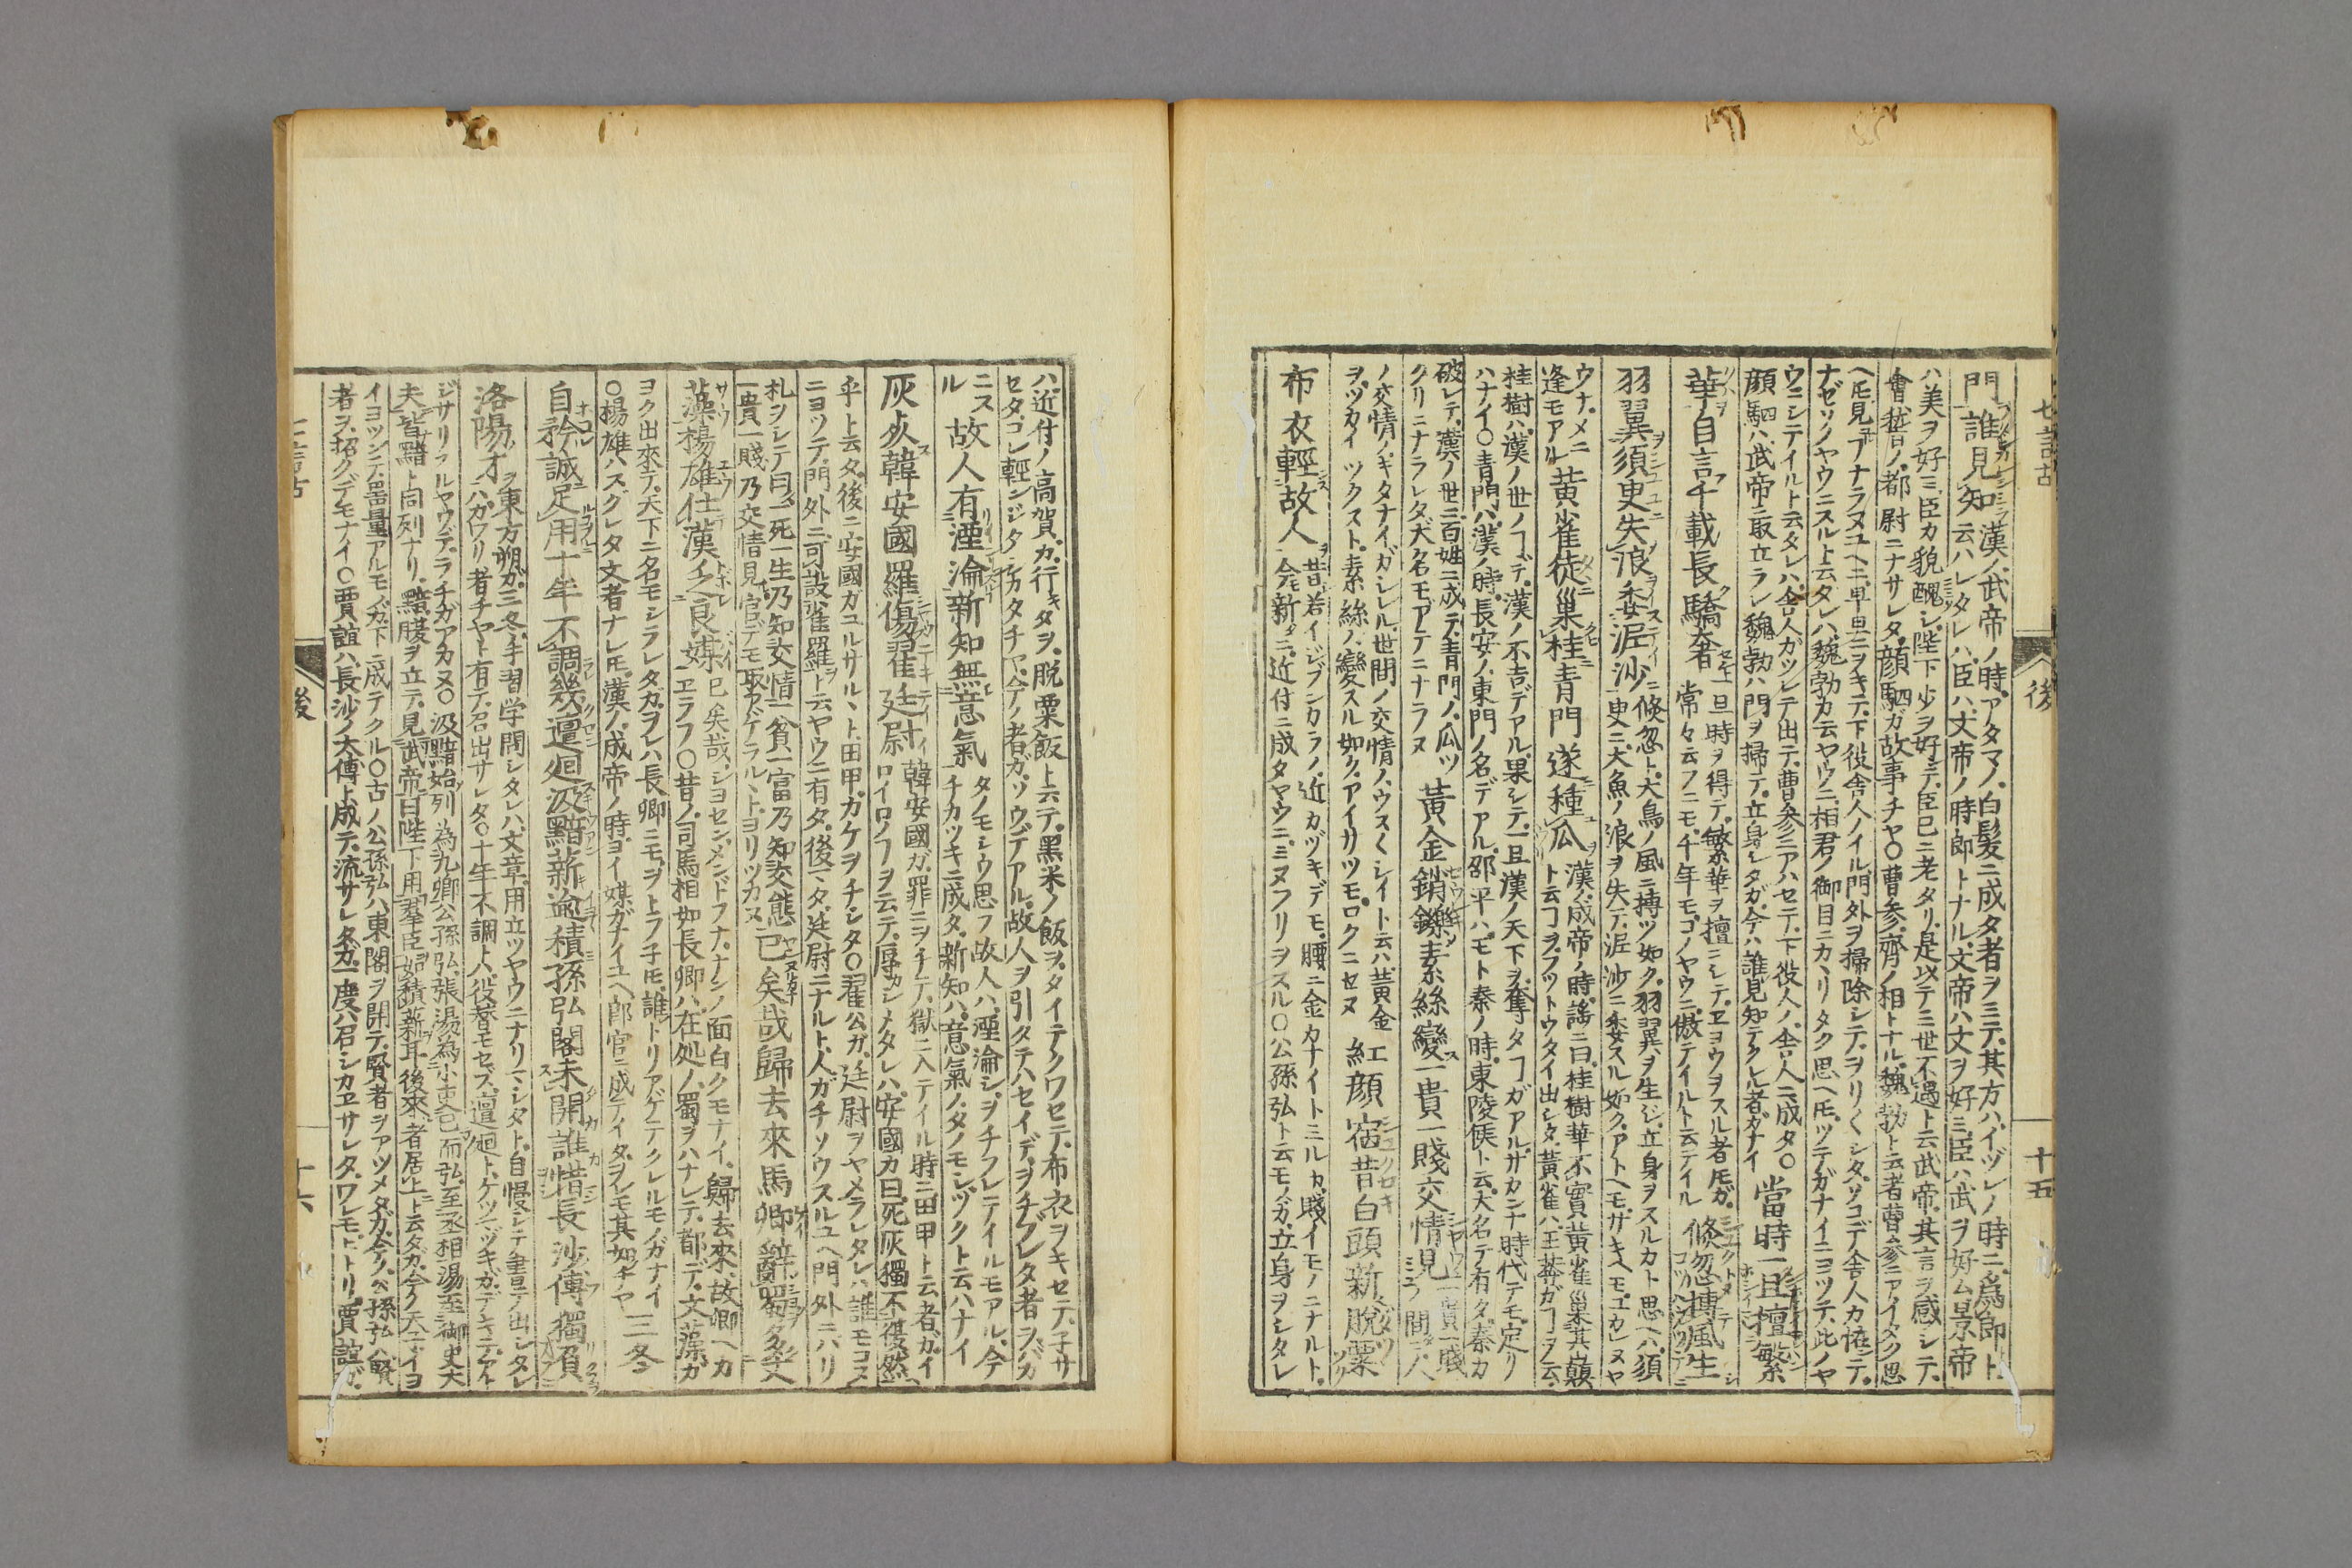 七言古
後
十五
門誰見知 漢ノ武帝ノ時、アタマノ白髪ニ成タ者ヲミテ、其方ハ、イヅレノ時ニ、爲郎ト
云ハレタレハ、臣ハ、文帝ノ時郎トナル、文帝ハ文ヲ好ミ、臣ハ武ヲ好ム、景帝
ハ美ヲ好ミ、臣カ貌醜シ、陛下少ヲ好テ、臣已ニ老タリ、是以テ三世不遇ト云、武帝、其言ヲ感シテ、
會稽ノ都尉ニナサレタ、顔駟ガ故事チヤ○曹参、齊ノ相トナル、魏勃ト云者、曹参ニアイタク思
ヘ𪜈、見ヿナラヌユヘニ、早旦ニヲキテ、下役舎人ノイル門外ヲ掃除シテ、ヲリ〱シタ、ソコデ舎人カ恠シテ、
ナゼソノヤウニスルト云タレハ、魏勃カ云ヤウニ、相君ノ御目ニカヽリタク思ヘ𪜈、ツテガナイニヨツテ、此ノヤ
ウニシテイルト云タレハ、舎人ガツレテ出テ、曹参ニアハセテ、下役人ノ舎人ニ成タ○ 當時一旦擅繁
顔駟ハ、武帝ニ取立ラレ、魏勃ハ門ヲ掃テ、立身シタガ、今ハ誰見知テクレル者ガナイ
華自言千載長驕奢 一旦時ヲ得テ、繁華ヲ擅ニシテ、ヱヨウヲスル者𪜈ガ、
常々云フニモ、千年モ、コノヤウニ、傲テイルト云テイル 倏忽摶風生
羽翼須臾失浪委泥沙 倏忽ト、大鳥ノ風ニ摶ツ如ク、羽翼ヲ生ジ、立身ヲスルカト思ヘハ、須
臾ニ大魚ノ浪ヲ失テ、泥沙ニ委スル如ク、アトヘモ、サキヘモ、ユカレヌヤ
ウナ、メニ
逢モアル 黄雀徒巢桂青門遂種瓜 漢ノ成帝ノ時、謡ニ曰、桂樹華不實、黄雀巢其巓
ト云ヿヲ、フツトウタイ出シタ、黄雀ハ、王莽ガヿヲ云、
桂樹ハ、漢ノ世ノヿデ、漢ノ不吉デアル、果シテ、一旦漢ノ天下ヲ奪タヿガアル、サカンナ時代デモ、定リ
ハナイ○青門ハ漢ノ時、長安ノ東門ノ名デアル、邵平ハ、モト秦ノ時、東陵侯ト云、大名デ有タ、秦カ
破レテ、漢ノ世ニ百姓ニ成テ、青門ノ瓜ツ
クリニナラレタ、大名モ、アテニナラヌ 黄金銷鑠素絲變一貴一賤交情見 一貴一賤
間ノ、人
ノ交情ノ、キタナイガシレル、世間ノ交情ノ、ウス〱シイト云ハ、黄金カナイトミルカ、賤イモノニナルト、
ヲ、ツカイツクスト、素絲ノ變スル如ク、アイサツモ、ロクニセヌ 紅顔宿昔白頭新脱粟
布衣輕故人 昔若イジブンカラノ、近カヅキデモ、腰ニ金カナイトミルカ、賤イモノニナルト、
今新タニ、近付ニ成タヤウニ、ミヌフリヲスル○公孫弘ト云モノガ、立身ヲシタレ
ハ、近付ノ高賀カ、行キタヲ、脱粟飯ト云テ、黒米ノ飯ヲ、ダイテクワセテ、布衣ヲキセテ、子サ
セタ、コレ輕シジタシカタチヤ、今ノ者ガ、ソウデアル、故人ヲ引タテハセイデ、ヲチブレタ者ヲ、バカ
ニス
ル 故人有湮淪新知無意氣 タノモシウ思フ故人ハ、湮淪シ、ヲチフレテイルモアル、今
チカツキニ成タ、新知ハ、意氣ノ、タノモシヅクト云ハナイ
灰死韓安國羅傷翟廷尉 韓安國ガ、罪ニヲチテ、獄ニ入テイル時ニ、田甲ト云者ガ、イ
ロイロノヿヲ云テ、辱カシメタレハ、安國カ曰、死灰獨不復然
乎ト云タ、後ニ安國カユルサルヽト、田甲、カケヲチシタ○翟公ガ、廷尉ヲヤメラレタレハ、誰モコス
ニヨツテ、門外ニ、可設雀羅ト云ヤウニ有タ、後マタ、廷尉ニナルト、人ガチソウスルユヘ、門外ニハリ
札ヲシテ曰、一死一生、乃知交情、一貧一富、乃知交態、
一貴一賤、乃交情見、官デモ取アゲラルヽト、ヨリツカヌ 已矣哉歸去來馬卿辭蜀多文
藻揚雄仕漢乏良媒 已矣哉、シヨセン、メンドフナ、ナンノ面白クモナイ、歸去來、故郷ヘカ
ヱラフ○昔ノ司馬相如長卿ハ、在処ノ蜀ヲハナレテ、都デ、文藻ガ
ヨク出來テ、天下ニ名モシラレタガ、ヲレハ長卿ニモ、ヲトラ子𪜈、誰トリアゲテクレルモノガナイ
○楊雄ハ、スグレタ文者ナレ𪜈、漢ノ成帝ノ時、ヨイ媒ガナイユヘ、郎官ニ成テイタ、ヲレモ其如チヤ 三冬
自矜誠足用十年不調幾邅廻汲黯薪逾積孫弘閣未開誰惜長沙傅獨負
洛陽才 東方朔ガ、三冬、手習学問シタレハ、文章ガ用立ツヤウニナリマシタト、自慢シテ、書テ出シタレ
ハ、ガワリ者チヤト有テ、召出サレタ○十年不調ト、役替モセズ、邅廻ト、ケツマヅキガ、デキテ、アト
ジサリスルヤウデ、ラチガアカヌ○汲黯始列為九卿、公孫弘、張湯為小吏、已而弘、至丞相、湯至御史大
夫、皆黯ト同列ナリ、黯腹ヲ立テ、見武帝曰、陛下用群臣、如積薪耳、後來者居上ト云タガ、今ノ天子、イヨ
イヨツンデ、器量アルモノガ、下ニ成テクル○古ノ公孫弘ハ、東閣ヲ開テ、賢者ヲアツメタガ、今ノ公孫弘ハ、賢
者ヲ、招クデモナイ○賈誼ハ、長沙ノ太傅ト成テ、流サレタガ、一度ハ召シカヱサレタ、ワレモ、ヒトリ賈誼ガ、
七言古
後
十六